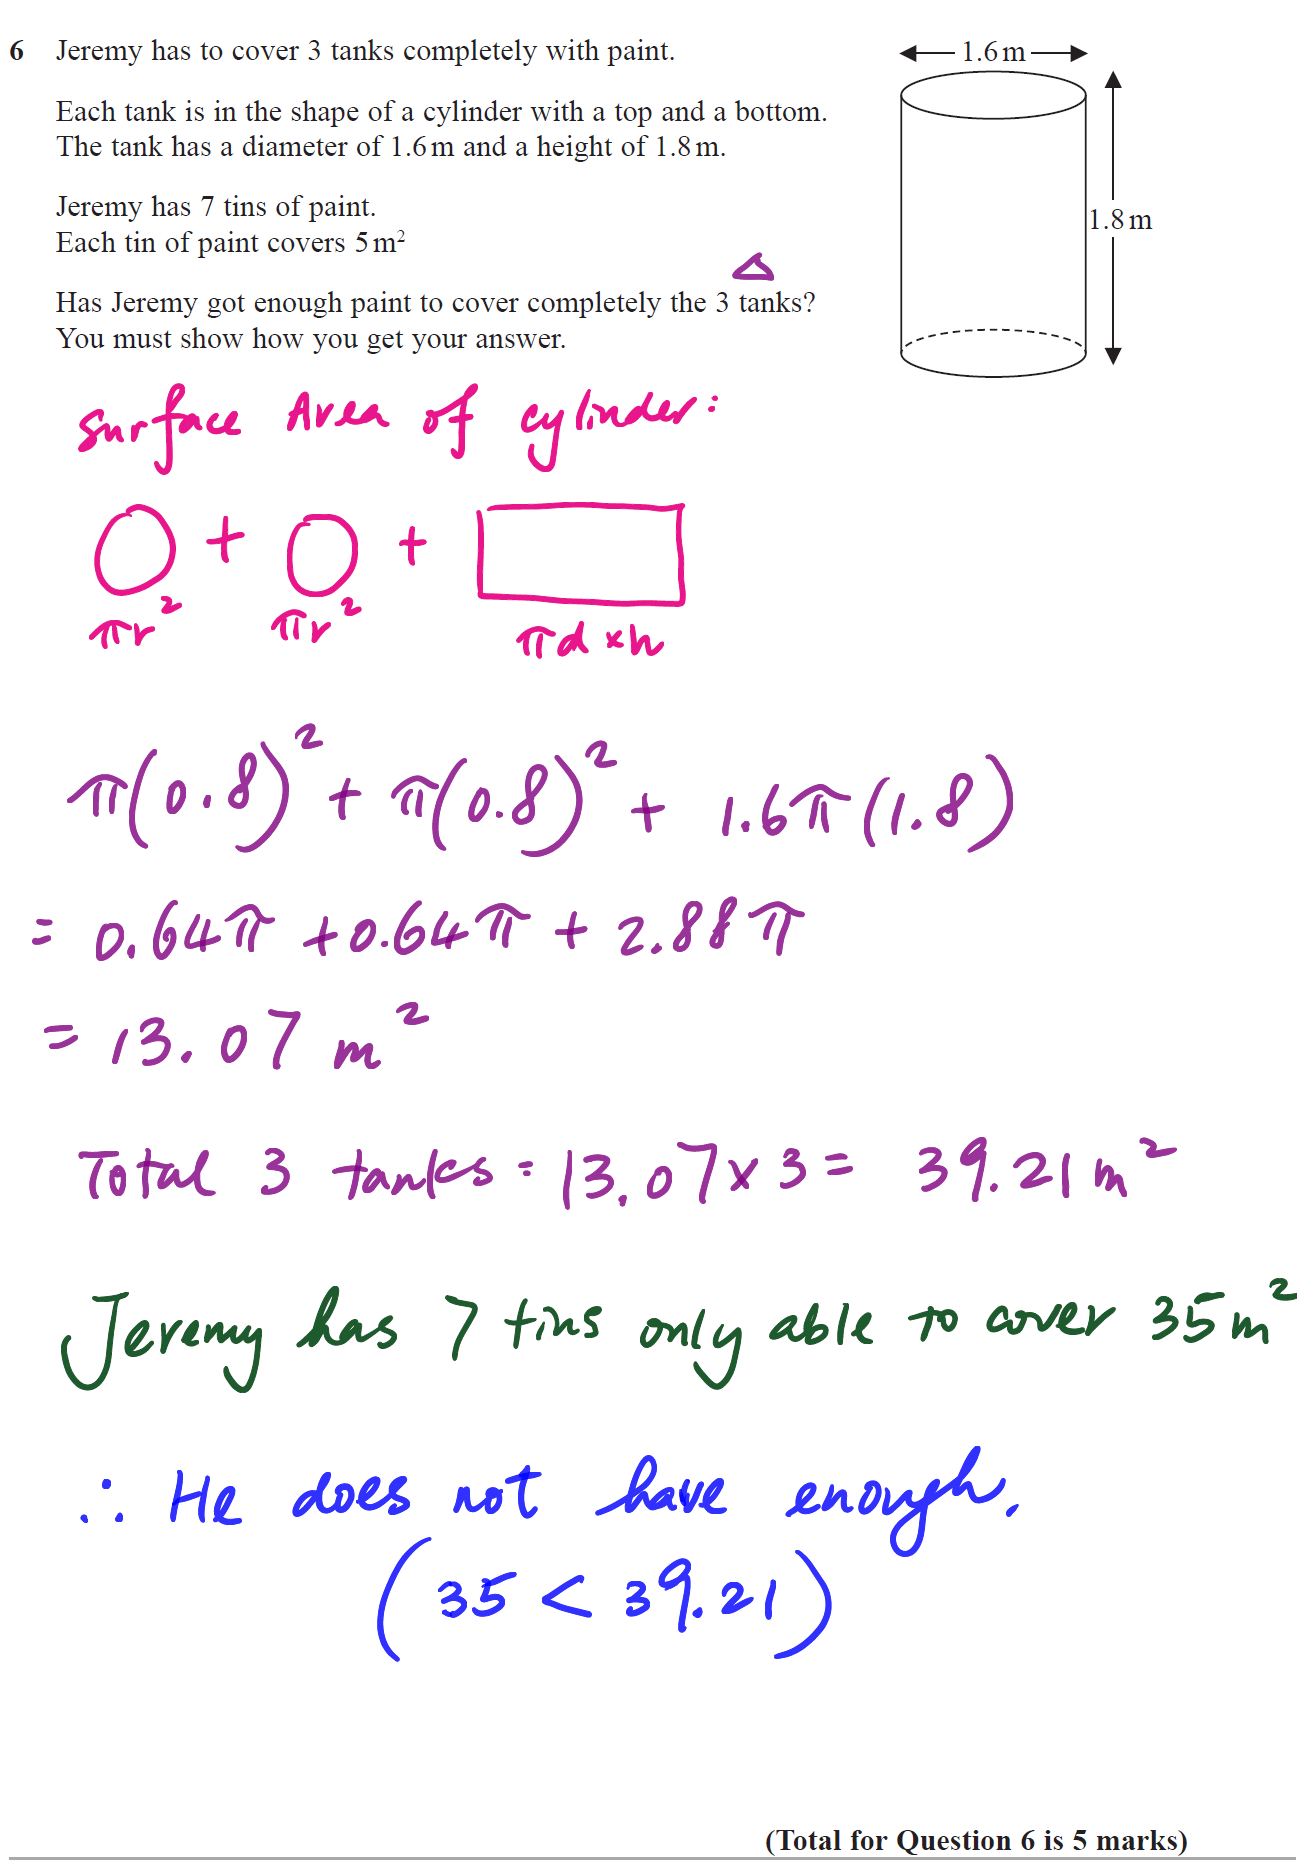 6 Jeremy has to cover 3 tanks completely with paint.
Each tank is in the shape of a cylinder with a top and a bottom.
The tank has a diameter of 1.6 m and a height of 1.8 m.
Jeremy has 7 tins of paint.
Each tin of paint covers 5 m²
Has Jeremy got enough paint to cover completely the 3 tanks?
You must show how you get your answer.
1.6 m
1.8 m
Surface Area of cylinder:
+ +
πr² πr² πd × h
π(0.8)² + π(0.8)² + 1.6π(1.8)
= 0.64π + 0.64π + 2.88π
= 13.07 m²
Total 3 tanks = 13.07 × 3 = 39.21 m²
Jeremy has 7 tins only able to cover 35 m²
∴ He does not have enough.
(35 < 39.21)
(Total for Question 6 is 5 marks)